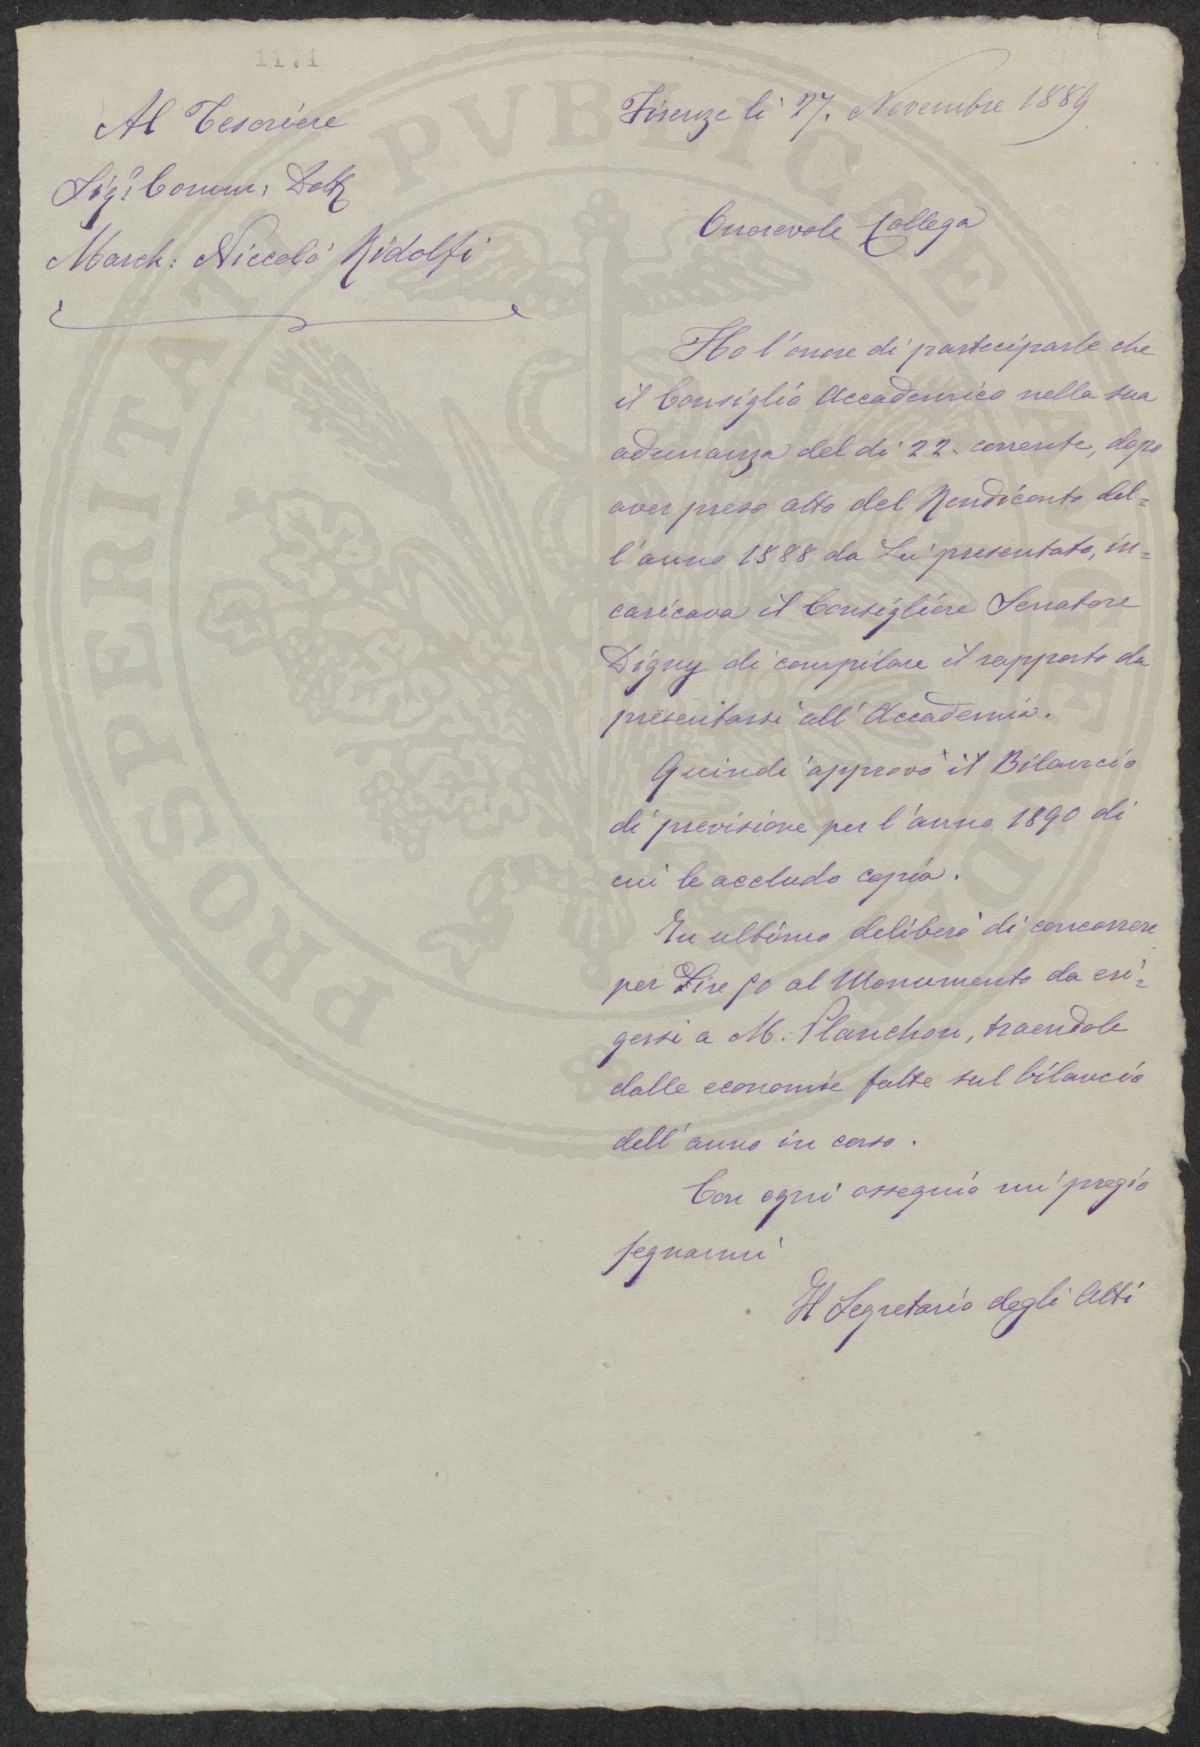 Al Tesoriere
Sig.r Comm: Dott
March: Niccolò Ridolfi
Firenze li 27. Novembre 1889
Onorevole Collega
Ho l'onore di partecipar le che
il Consiglio Accademico nella sua
adunanza del dì 22. corrente, dopo
aver preso atto del Rendiconto del=
l'anno 1888 da Lei presentato, in=
caricava il Consigliere Senatore
Digny di compilare il rapporto da
presentarsi all'Accademia.
Quindi approvò il Bilancio
di previsione per l'anno 1890 di
cui le accludo copia.
In ultimo deliberò di concorrere
per Lire 50 al Monumento da eri=
gersi a M. Planchon, traendole
dalle economie fatte sul bilancio
dell'anno in corso.
Con ogni ossequio mi pregio
segnarmi
Il Segretario degli Atti
PROSPERITATI PVBLICAE